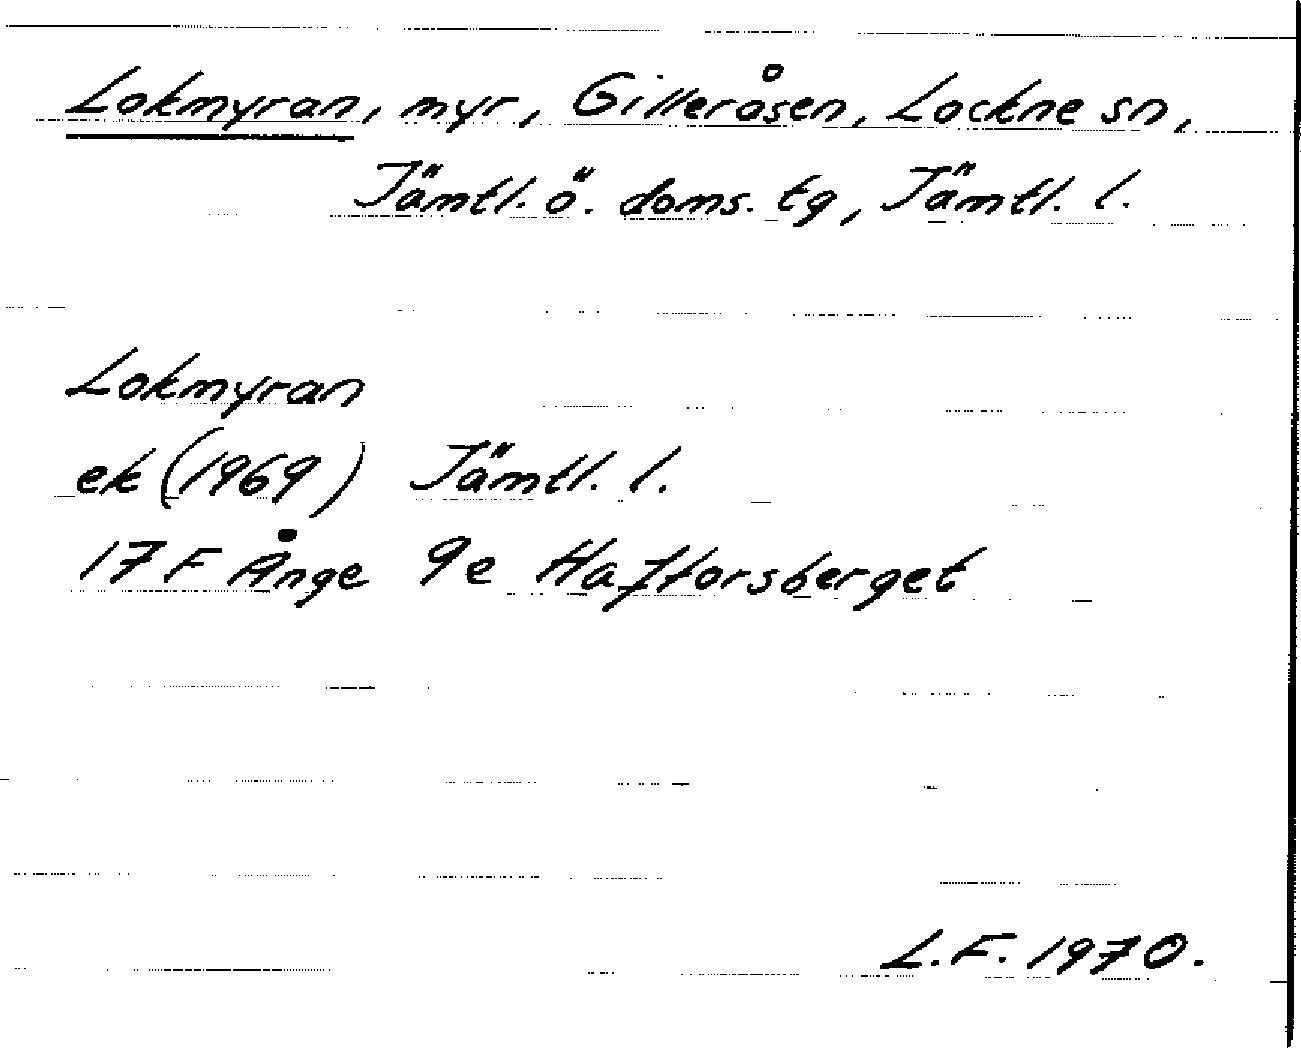 Lokmyran, myr, Gilleråsen, Lockne sn,
Jämtl. ö. doms. tg, Jämtl. l.
Lokmyran
ek (1969) Jämtl. l.
17 F Ånge 9e Haftorsberget
L.F. 1970.